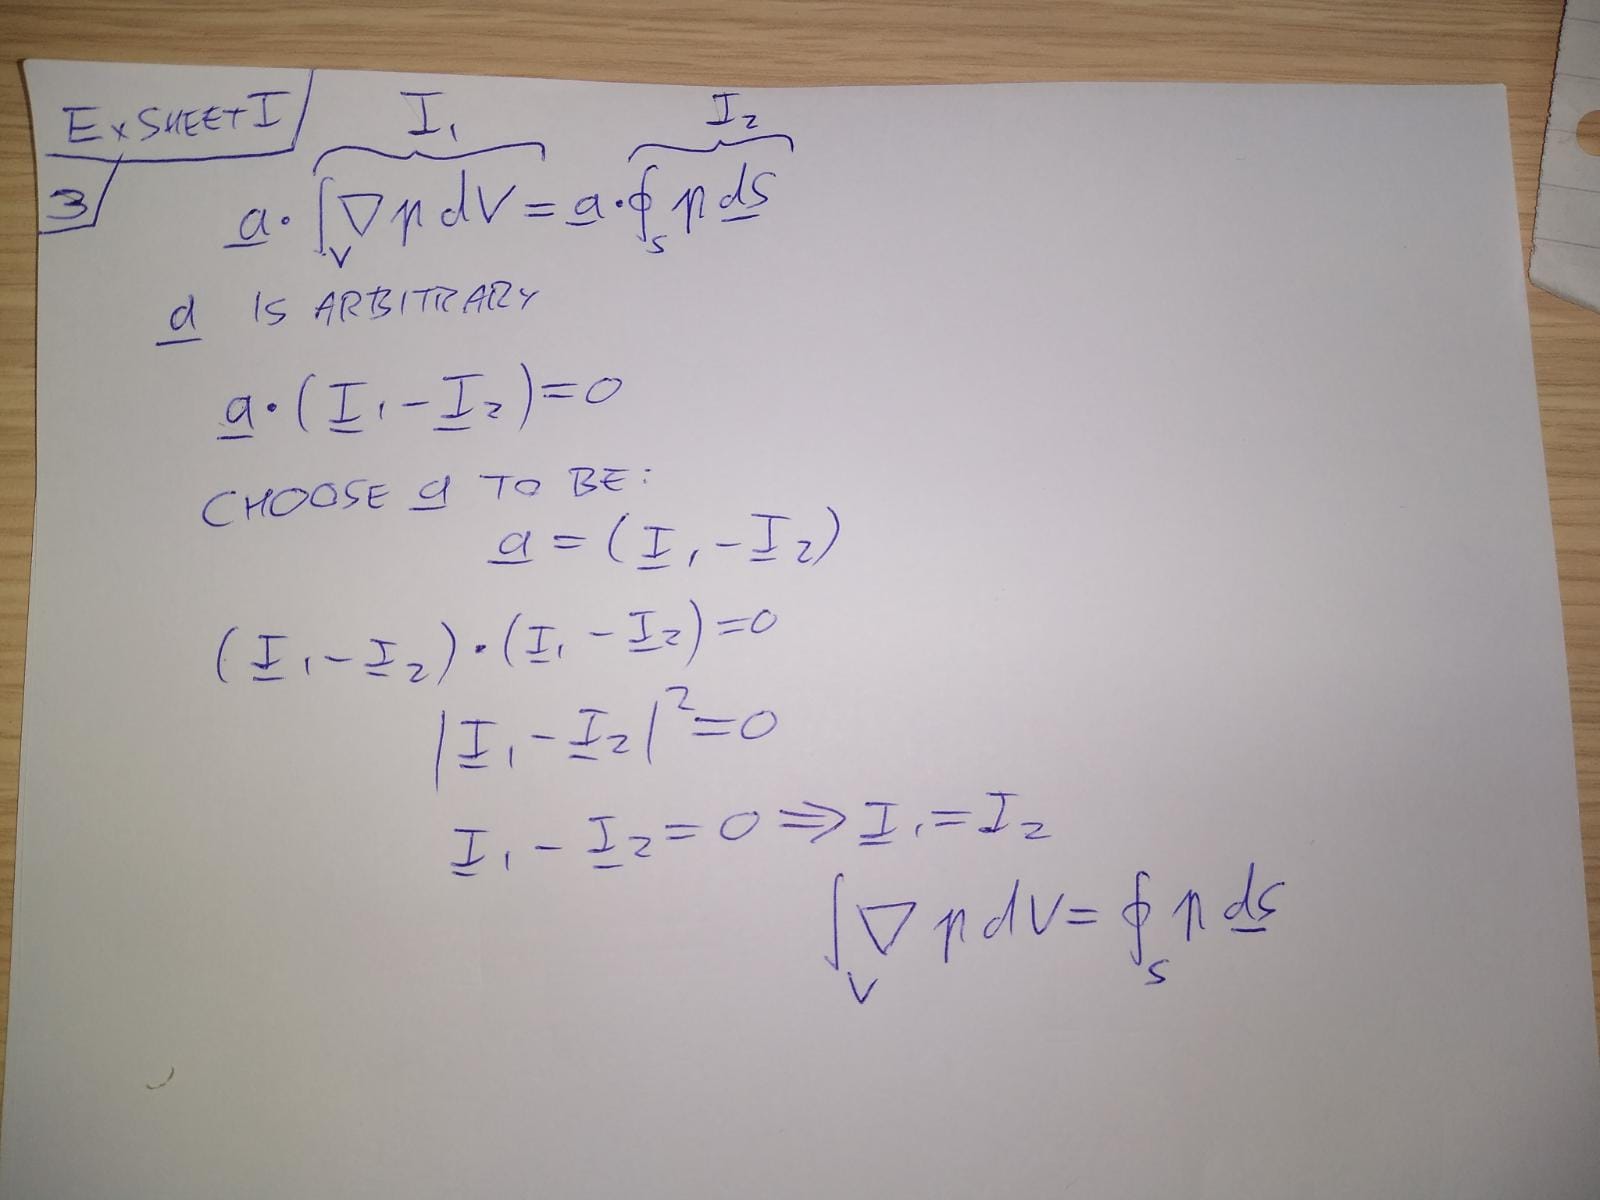 Ex SHEET I
I₁ I₂
3
a̲ · ∫_V ∇p dV = a̲ · ∮_S p dS̲
a̲ IS ARBITRARY
a̲ · (I̲₁ - I̲₂) = 0
CHOOSE a̲ TO BE:
a̲ = (I̲₁ - I̲₂)
(I̲₁ - I̲₂) · (I̲₁ - I̲₂) = 0
|I̲₁ - I̲₂|² = 0
I̲₁ - I̲₂ = 0 ⇒ I̲₁ = I₂
∫_V ∇p dV = ∮_S p dS̲